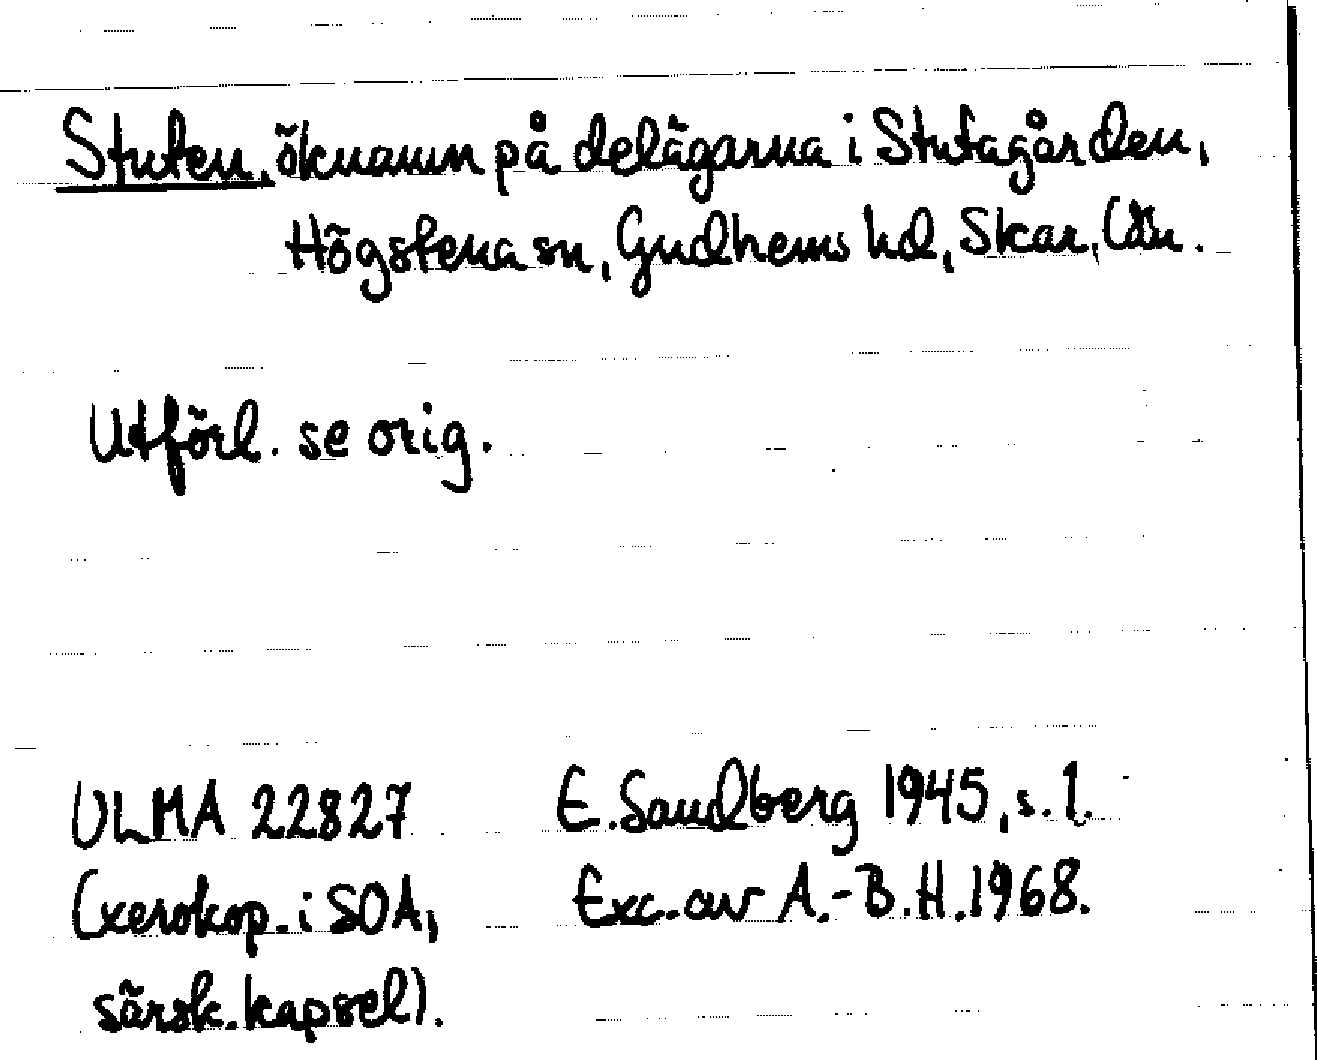 Stuten, öknamn på delägarna i Stutagården,
Högstena sn, Gudhems hd, Skar. län.
Utförl. se orig.
ULMA 22827 E. Sandberg 1945, s. 1.
(xerokop. i SOA, Exc. av A.-B.H. 1968.
särsk. kapsel).